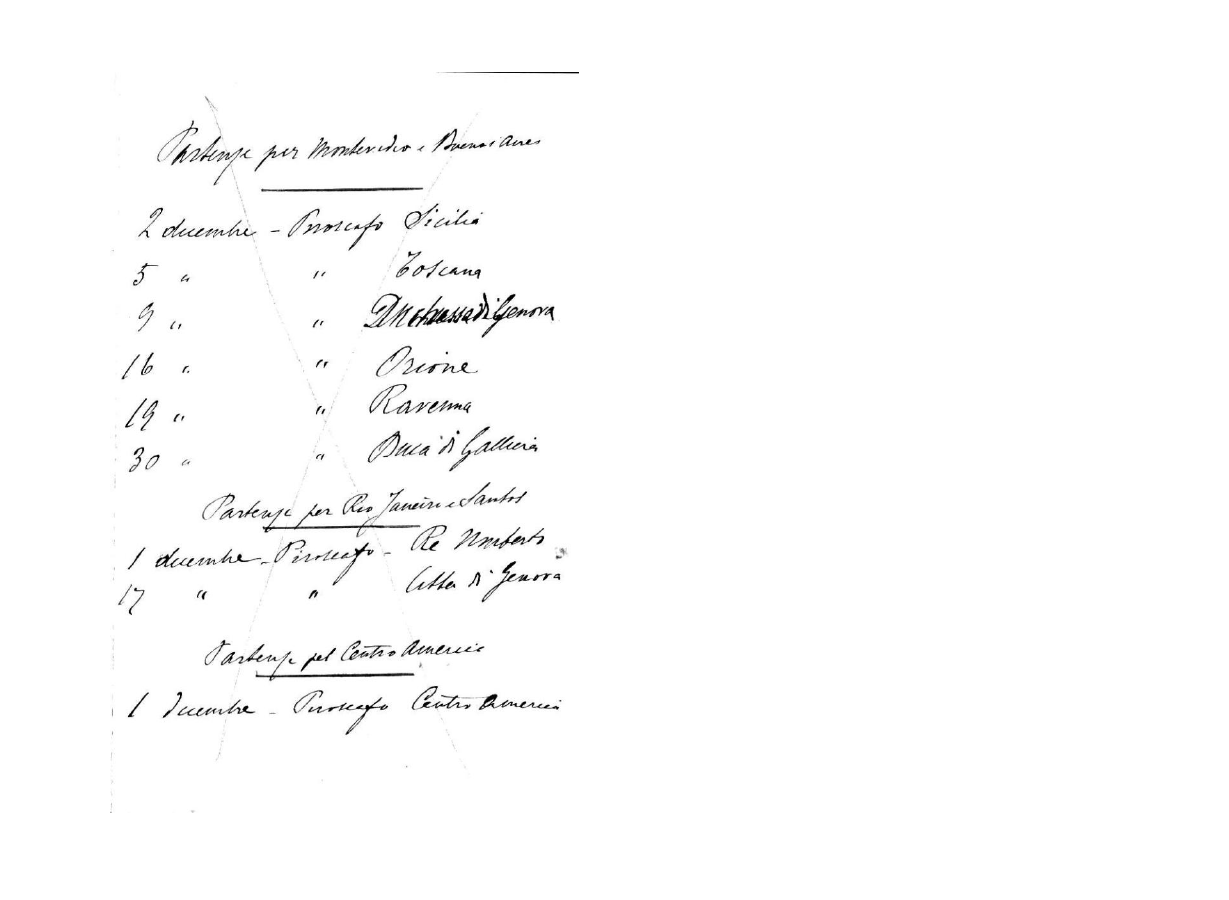 Partenze per Montevideo e Buenos Aires
2 dicembre - Piroscafo Sicilia
5 " " Toscana
9 " " Duchessa di Genova
16 " " Orione
19 " " Ravenna
30 " " Duca di Galliera
Partenze per Rio Janeiro e Santos
1 dicembre - Piroscafo - Re Umberto
17 " " Citta di Genova
Partenze pel Centro America
1 dicembre - Piroscafo Centro America